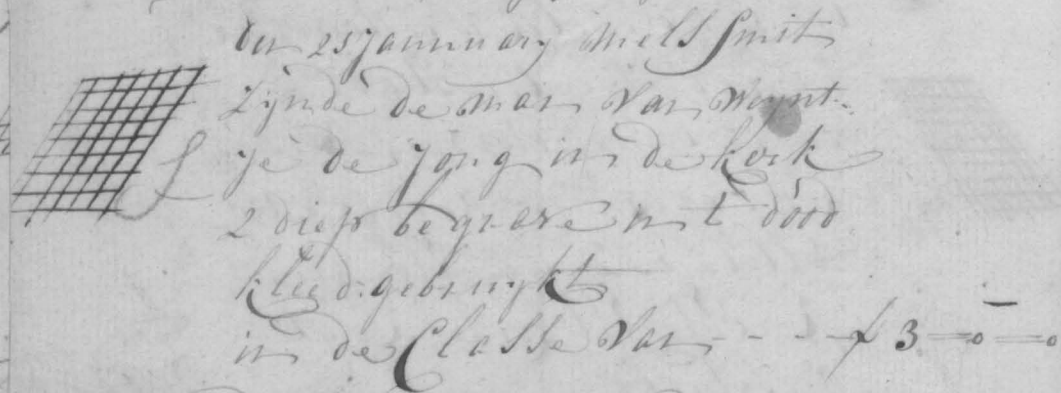 den 25 Jannuary Niels Smit
Zijnde de man van Wijnt-
je de Jong in de kerk
2 diep begrave en t dood
kleed gebruykt
in de Classe van - - - - f 3 = o = o